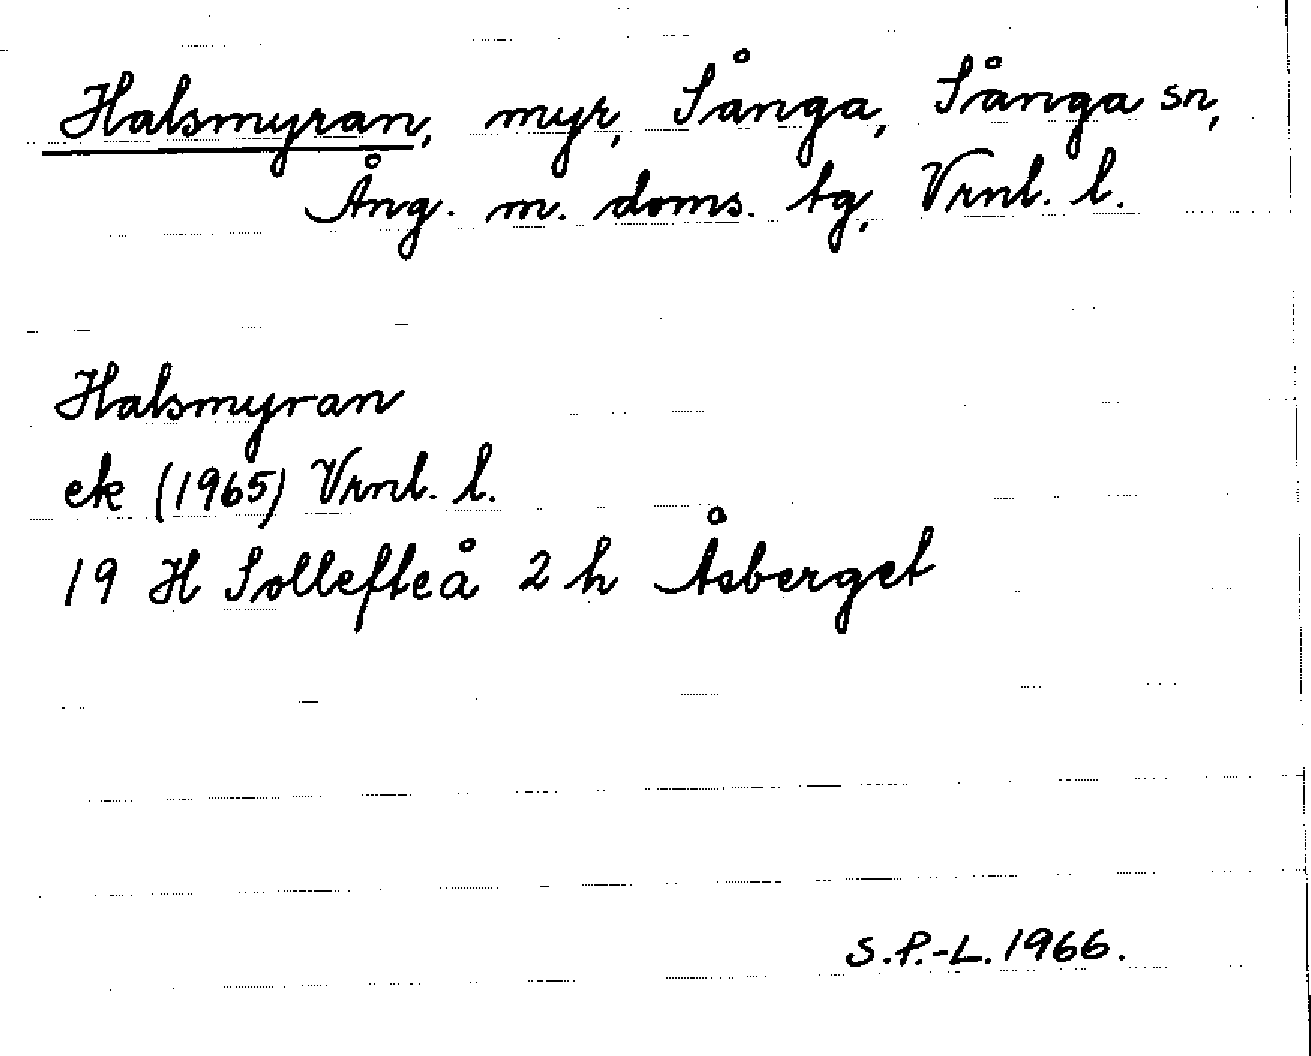 Halsmyran, myr, Sånga, Sånga sn,
Ång. m. doms. tg, Vrnl. l.
Halsmyran
ek (1965) Vrnl. l.
19 H Sollefteå 2 h Åsberget
S.P.-L. 1966.